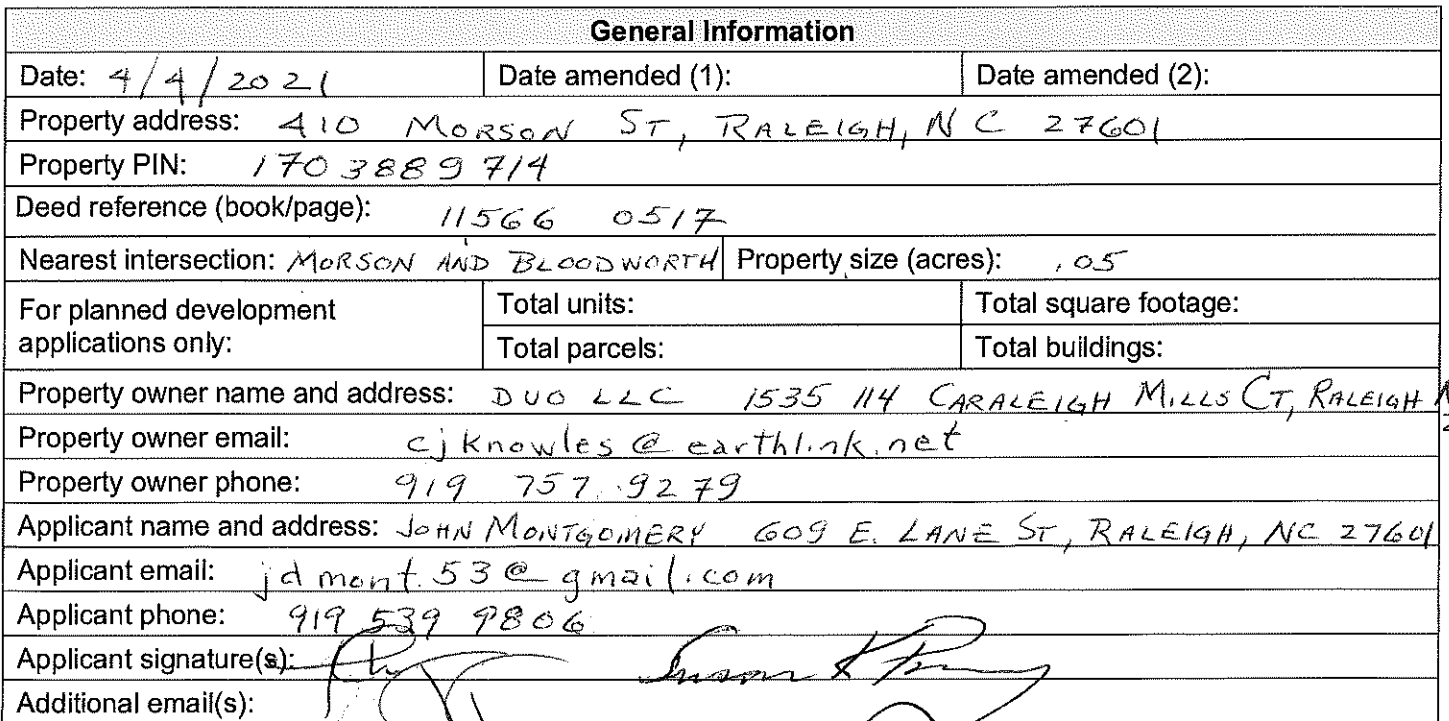 General Information
Date: 4/4/2021 Date amended (1): Date amended (2):
Property address: 410 MORSON ST, RALEIGH, NC 27601
Property PIN: 1703889714
Deed reference (book/page): 11566 0517
Nearest intersection: MORSON AND BLOODWORTH Property size (acres): .05
For planned development applications only: Total units: Total square footage:
Total parcels: Total buildings:
Property owner name and address: DUO LLC 1535 114 CARALEIGH MILLS CT, RALEIGH
Property owner email: cjknowles@earthlink.net
Property owner phone: 919 757.9279
Applicant name and address: JOHN MONTGOMERY 609 E. LANE ST, RALEIGH, NC 27601
Applicant email: jdmont.53@gmail.com
Applicant phone: 919 539 9806
Applicant signature(s): Susan K
Additional email(s):